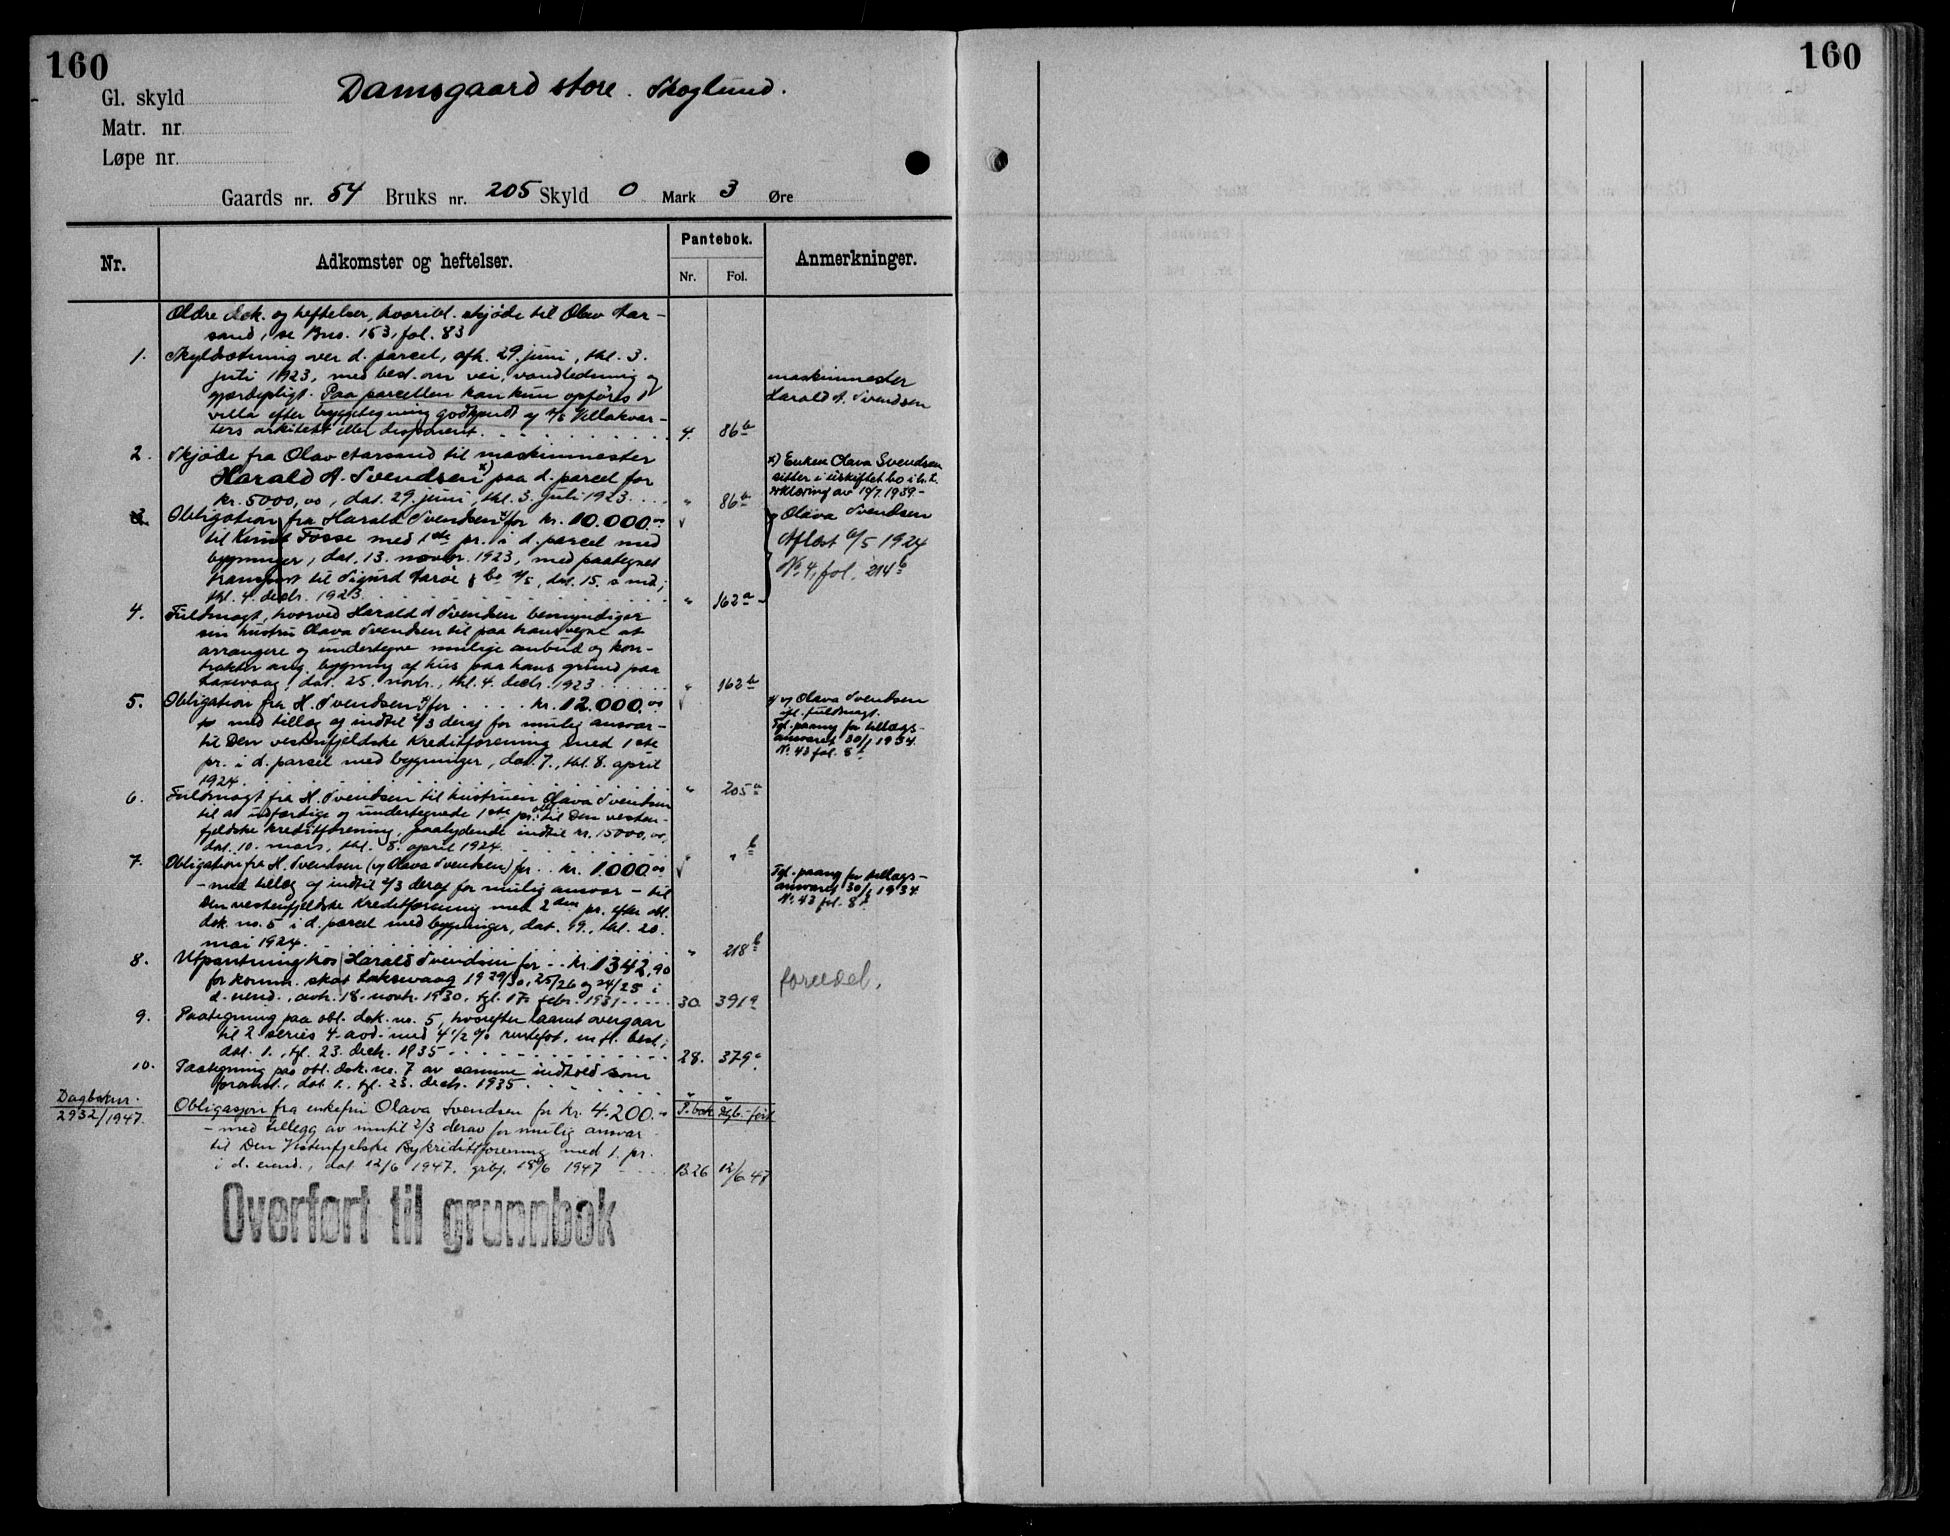 160
160
Gl. skyld
Damsgaard store. Skoglund.
Matr. nr.
Løpe nr.
Gaards nr. 54 Bruks nr. 205 Skyld 0 Mark 3 Øre
Nr.
Adkomster og heftelser.
Pantebok.
Nr. Fol.
Anmerkninger.
Ældre dok. og heftelser, hvoribl. skjøde til Olav Aar-
sand, se Bno. 153, fol. 83
1. Skyldsætning over d. parcel, afh. 29. juni, thl. 3.
juli 1923, med best. om vei, vandledning og
gjærdepligt. Paa parcellen kan kun opføres 1
villa efter byggetegning godkjendt af A/S Villakvar-
ters arkitekt eller disponent. 4. 86b
maskinmester
Harald A. Svendsen
2. Skjøde fra Olav Aarsand til maskinmester
Harald A. Svendsen x) paa d. parcel for
kr. 5000,00, dat. 29. juni, thl. 3. juli 1923. " 86b
x) Enken Olava Svendsen
sitter i uskiftet bo i h. t.
erklæring av 14/7 1939.-
3. Obligation fra Harald Svendsen x) for kr. 10.000.00
til Knut Fosse med 1ste pr. i d. parcel med
bygninger, dat. 13. novbr. 1923, med paategnet
transport til Sigurd Aarøe & Co A/S, dat. 15. s. md.,
thl. 4. decbr. 1923. " 162a
x) og Olava Svendsen
Aflæst 6/5 1924
No 4, fol. 214b
4. Fuldmagt, hvorved Harald A Svendsen bemyndiger
sin hustru Olava Svendsen til paa hans vegne at
arrangere og undertegne mulige anbud og kon-
trakter ang. bygning af hus paa hans grund paa
Laxevaag, dat. 25. novbr., thl. 4. decbr. 1923. " 162b
5. Obligation fra H. Svendsen x) for kr. 12.000.00
med tillæg af indtil 2/3 deraf for mulig ansvar-
til Den vestenfjeldske Kreditforening med 1ste
pr. i d. parcel med bygninger, dat. 7., thl. 8. april
1924. " 205a
x) og Olava Svendsen
ifl. fuldmagt.
Tgl. paateg for tillægs-
ansvaret 30/1 1934.
No 43 fol. 8b
6. Fuldmagt fra H. Svendsen til hustruen Olava Svendsen
til at utfærdige og undertegnede 1ste pr. obl. til Den vesten-
fjeldske Kreditforening, paalydende indtil kr. 15000,00,
dat. 10. mars, thl. 8. april 1924. " " b
7. Obligation fra H. Svendsen (og Olava Svendsen) for kr. 1.000.00
- med tillæg af indtil 2/3 deraf for mulig ansvar - til
Den vestenfjeldske Kreditforening med 2den pr. efter obl.
dok. no. 5 i d. parcel med bygninger, dat. 19., thl. 20.
mai 1924. " 218b
Tgl. paateg for tillægs-
ansvaret 30/1 1934.
No 43 fol. 8b
8. Utpantning hos Harald Svendsen for kr. 1342,90
for komm. skat Laksevaag 1929/30, 25/26 og 24/25 i
d. eiend., avh. 18. novbr. 1930, tgl. 17. febr. 1931 30. 391a
foreldet.
9. Paategning paa obl. dok. no. 5, hvorefter laanet overgaar
til 2. series 4. avd. med 4 1/2 % rentefot, m. fl. best.,
dat. 1., tgl. 23. decb. 1935 28. 379a
10. Paategning paa obl. dok. no. 7 av samme indhold som
forannt., dat. 1., tgl. 23. decb. 1935. " "
Dagboknr.
2932/1947.
Obligasjon fra enkefru Olava Svendsen for kr. 4.200.- P.bok dgb.-ført
- med tillegg av inntil 2/3 derav for mulig ansvar
til Den Vestenfjelske Bykredittforening med 1. pr.
i d. eiend., dat 12/6 1947. 1947 B26 12/6 47
Overført til grunnbok